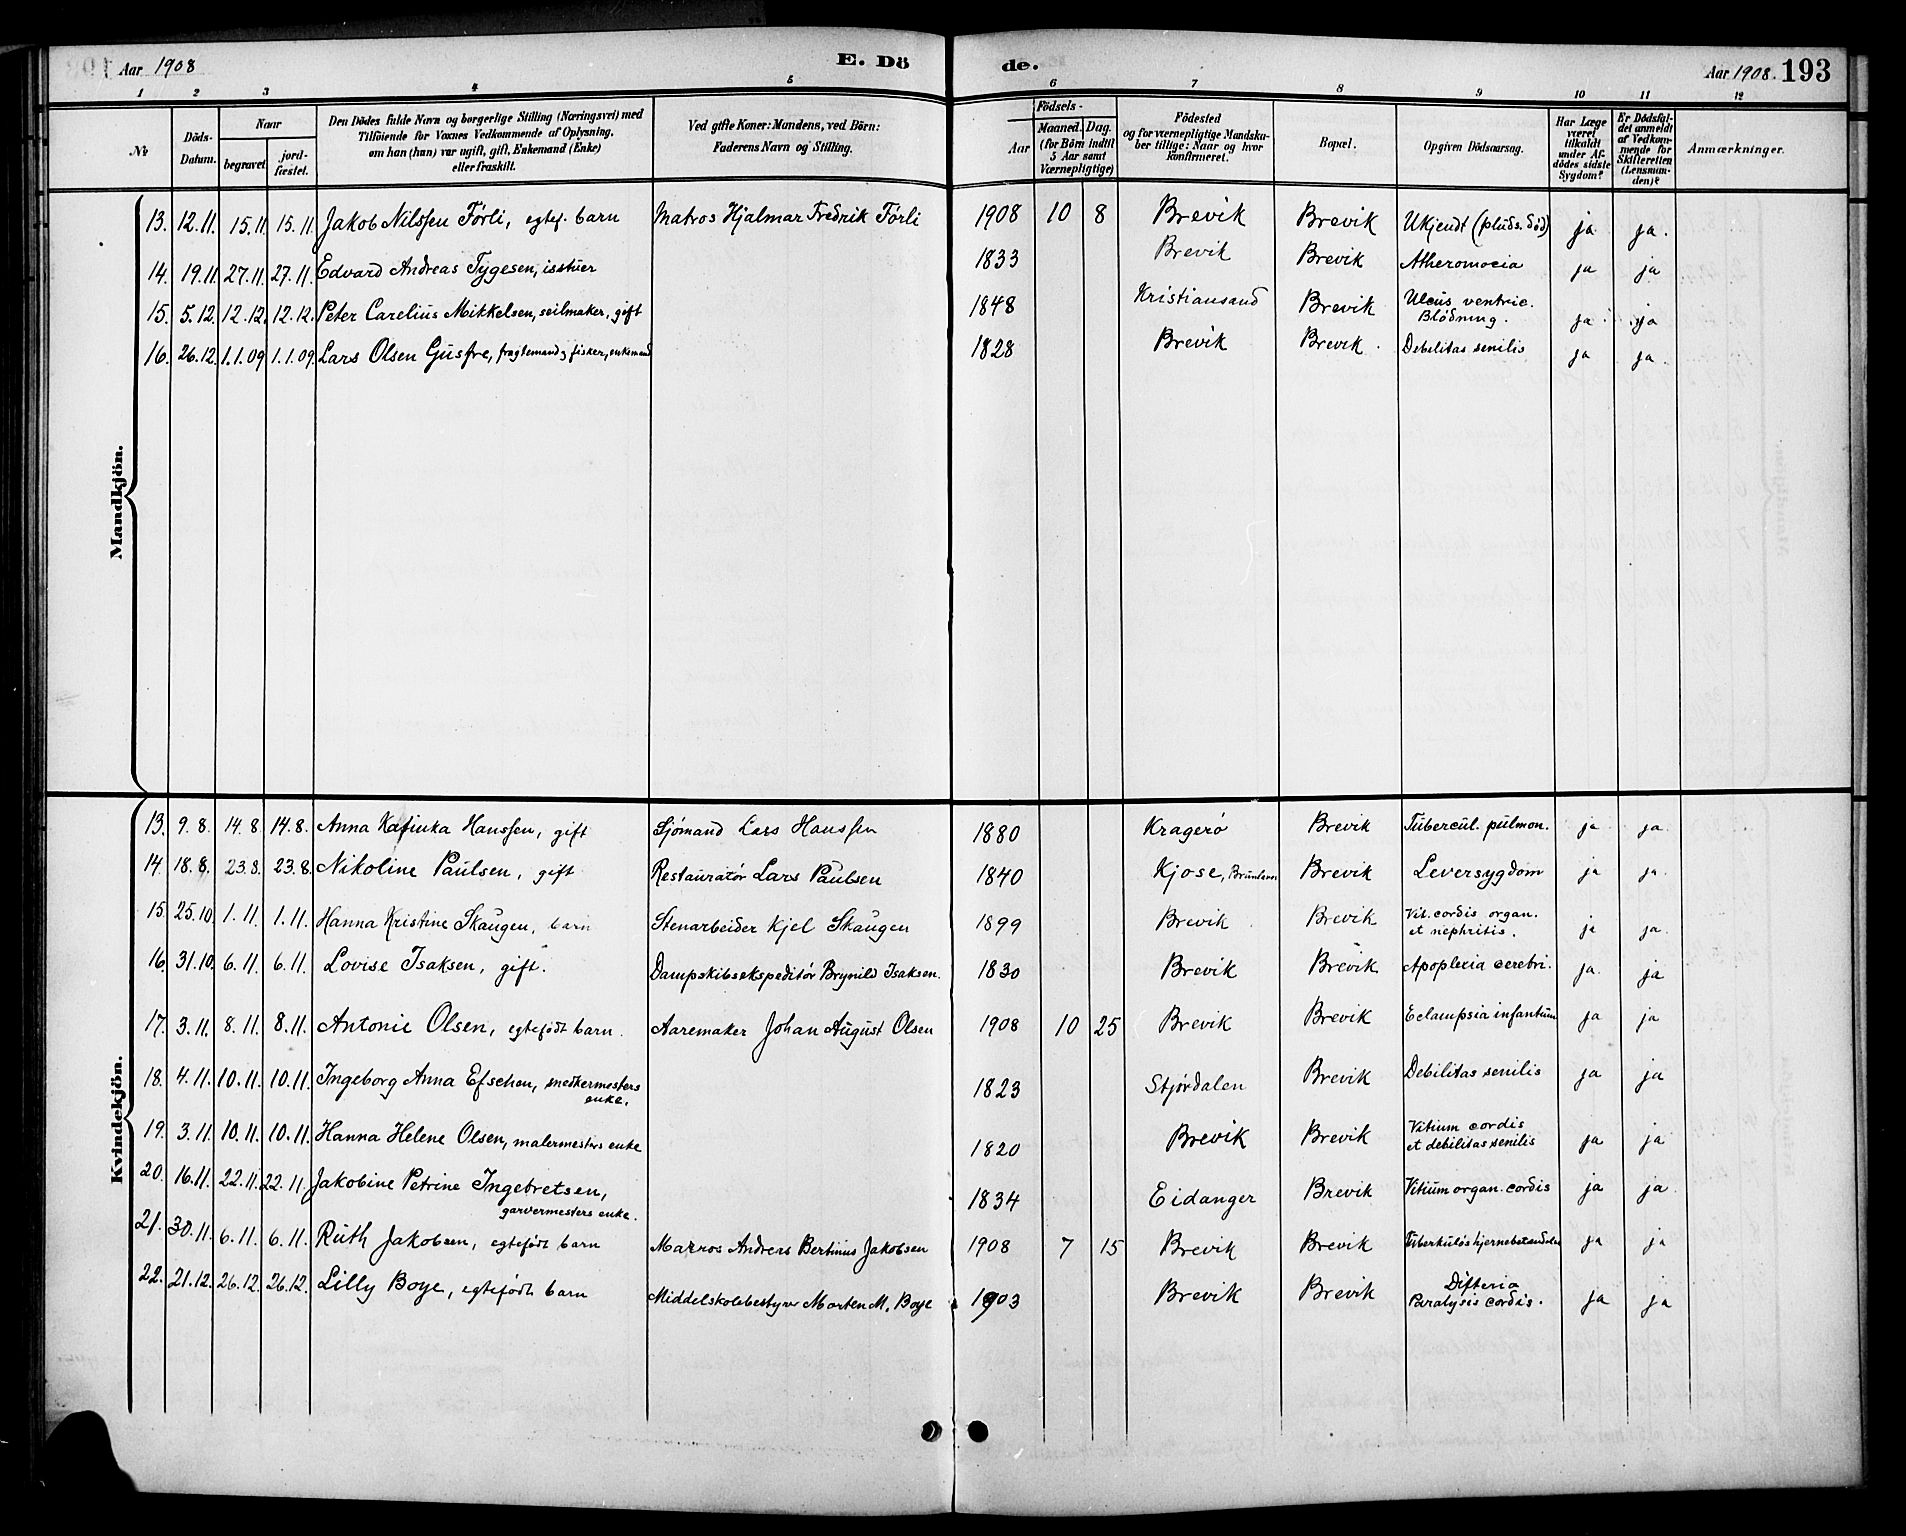 Aar 1908
E. Dö
de.
Aar 1908. 193
1 2 3 4 5 6 7 8 9 10 11 12
Nr
Döds-
Datum.
Naar
begravet.
jord-
fæstet.
Den Dödes fulde Navn og borgerlige Stilling (Næringsvei) med
Tilföiende for Voxnes Vedkommende af Oplysning,
om han (hun) var ugift, gift, Enkemand (Enke)
eller fraskilt.
Ved gifte Koner: Mandens, ved Börn:
Faderens Navn og Stilling.
Födsels-
Aar
Maaned. Dag.
(for Börn indtil
5 Aar samt
Værnepligtige)
Födested
og for værnepligtige Mandska-
ber tillige: Naar og hvor
konfirmeret.
Bopæl.
Opgiven Dödsaarsag.
Har Læge
været
tilkaldt
under Af-
dödes sidste
Sygdom?
Er Dödsfal-
det anmeldt
af Vedkom-
mende for
Skifteretten
(Lensman-
den)?
Anmærkninger.
Mandkjön.
13. 12.11. 15.11. 15.11. Jakob Nilssen Förli, egtef. barn Matros Hjalmar Fredrik Förli 1908 10 8 Brevik Brevik Ukjendt (pluds. död) ja ja.
14. 19.11. 27.11. 27.11. Edvard Andreas Tygesen, isstuer 1833 Brevik Brevik Atheromocia ja ja
15. 5.12. 12.12. 12.12. Peter Carelius Mikkelsen, seilmaker, gift 1848 Kristiansand Brevik Ulcus ventric.
Blödning. ja ja
16. 26.12. 1.1.09 1.1.09. Lars Olsen Gusfre, fragtemand, fisker, enkemand 1828 Brevik Brevik. Debilitas senilis ja ja.
Kvindekjön.
13. 9.8. 14.8. 14.8. Anna Kafinka Hanssen, gift Sjömand Lars Hanssen 1880 Kragerø Brevik Tubercul. pulmon. ja ja.
14. 18.8. 23.8. 23.8. Nikoline Paulsen, gift Restauratør Lars Paulsen 1840 Kjose, Brunlanes Brevik Leversygdom ja ja.
15. 25.10. 1.11. 1.11. Hanna Kristine Skaugen, barn Stenarbeider Kjel Skaugen 1899 Brevik Brevik Vit. cordis organ.
et nephritis. ja ja.
16. 31.10. 6.11. 6.11. Lovise Isaksen, gift. Dampskibsekspeditör Brynild Isaksen. 1830 Brevik Brevik Apoplexia cerebri. ja. ja
17. 3.11. 8.11. 8.11. Antonie Olsen, egtefödt barn. Aaremaker Johan August Olsen 1908 10 25 Brevik Brevik Eclampsia infantum ja ja
18. 4.11. 10.11. 10.11. Ingeborg Anna Efschen, snedkermesters
enke. 1823 Stjördalen Brevik Debilitas senilis ja ja
19. 3.11. 10.11. 10.11. Hanna Helene Olsen, malermesters enke 1820 Brevik Brevik Vitium cordis
et debilitas senilis ja ja
20. 16.11. 22.11. 22.11. Jakobine Petrine Ingebretsen,
garvermesters enke. 1834 Eidanger Brevik Vitium organ. cordis ja ja
21. 30.11. 6.11. 6.11. Ruth Jakobsen, egtefödt barn Matros Andreas Bertinus Jakobsen 1908 7 15 Brevik Brevik Tiberkulös hjernebetændelse ja ja
22. 21.12. 26.12. 26.12. Lilly Boye, egtefödt barn Middelskolebestyrer Morten M. Boye 1903 Brevik Brevik Difteria
Paralysis cordis. ja ja